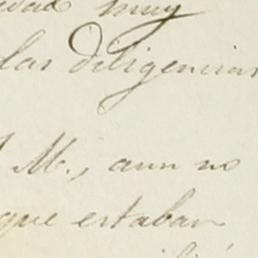 muy
las diligencias
M., aun no
que estaban